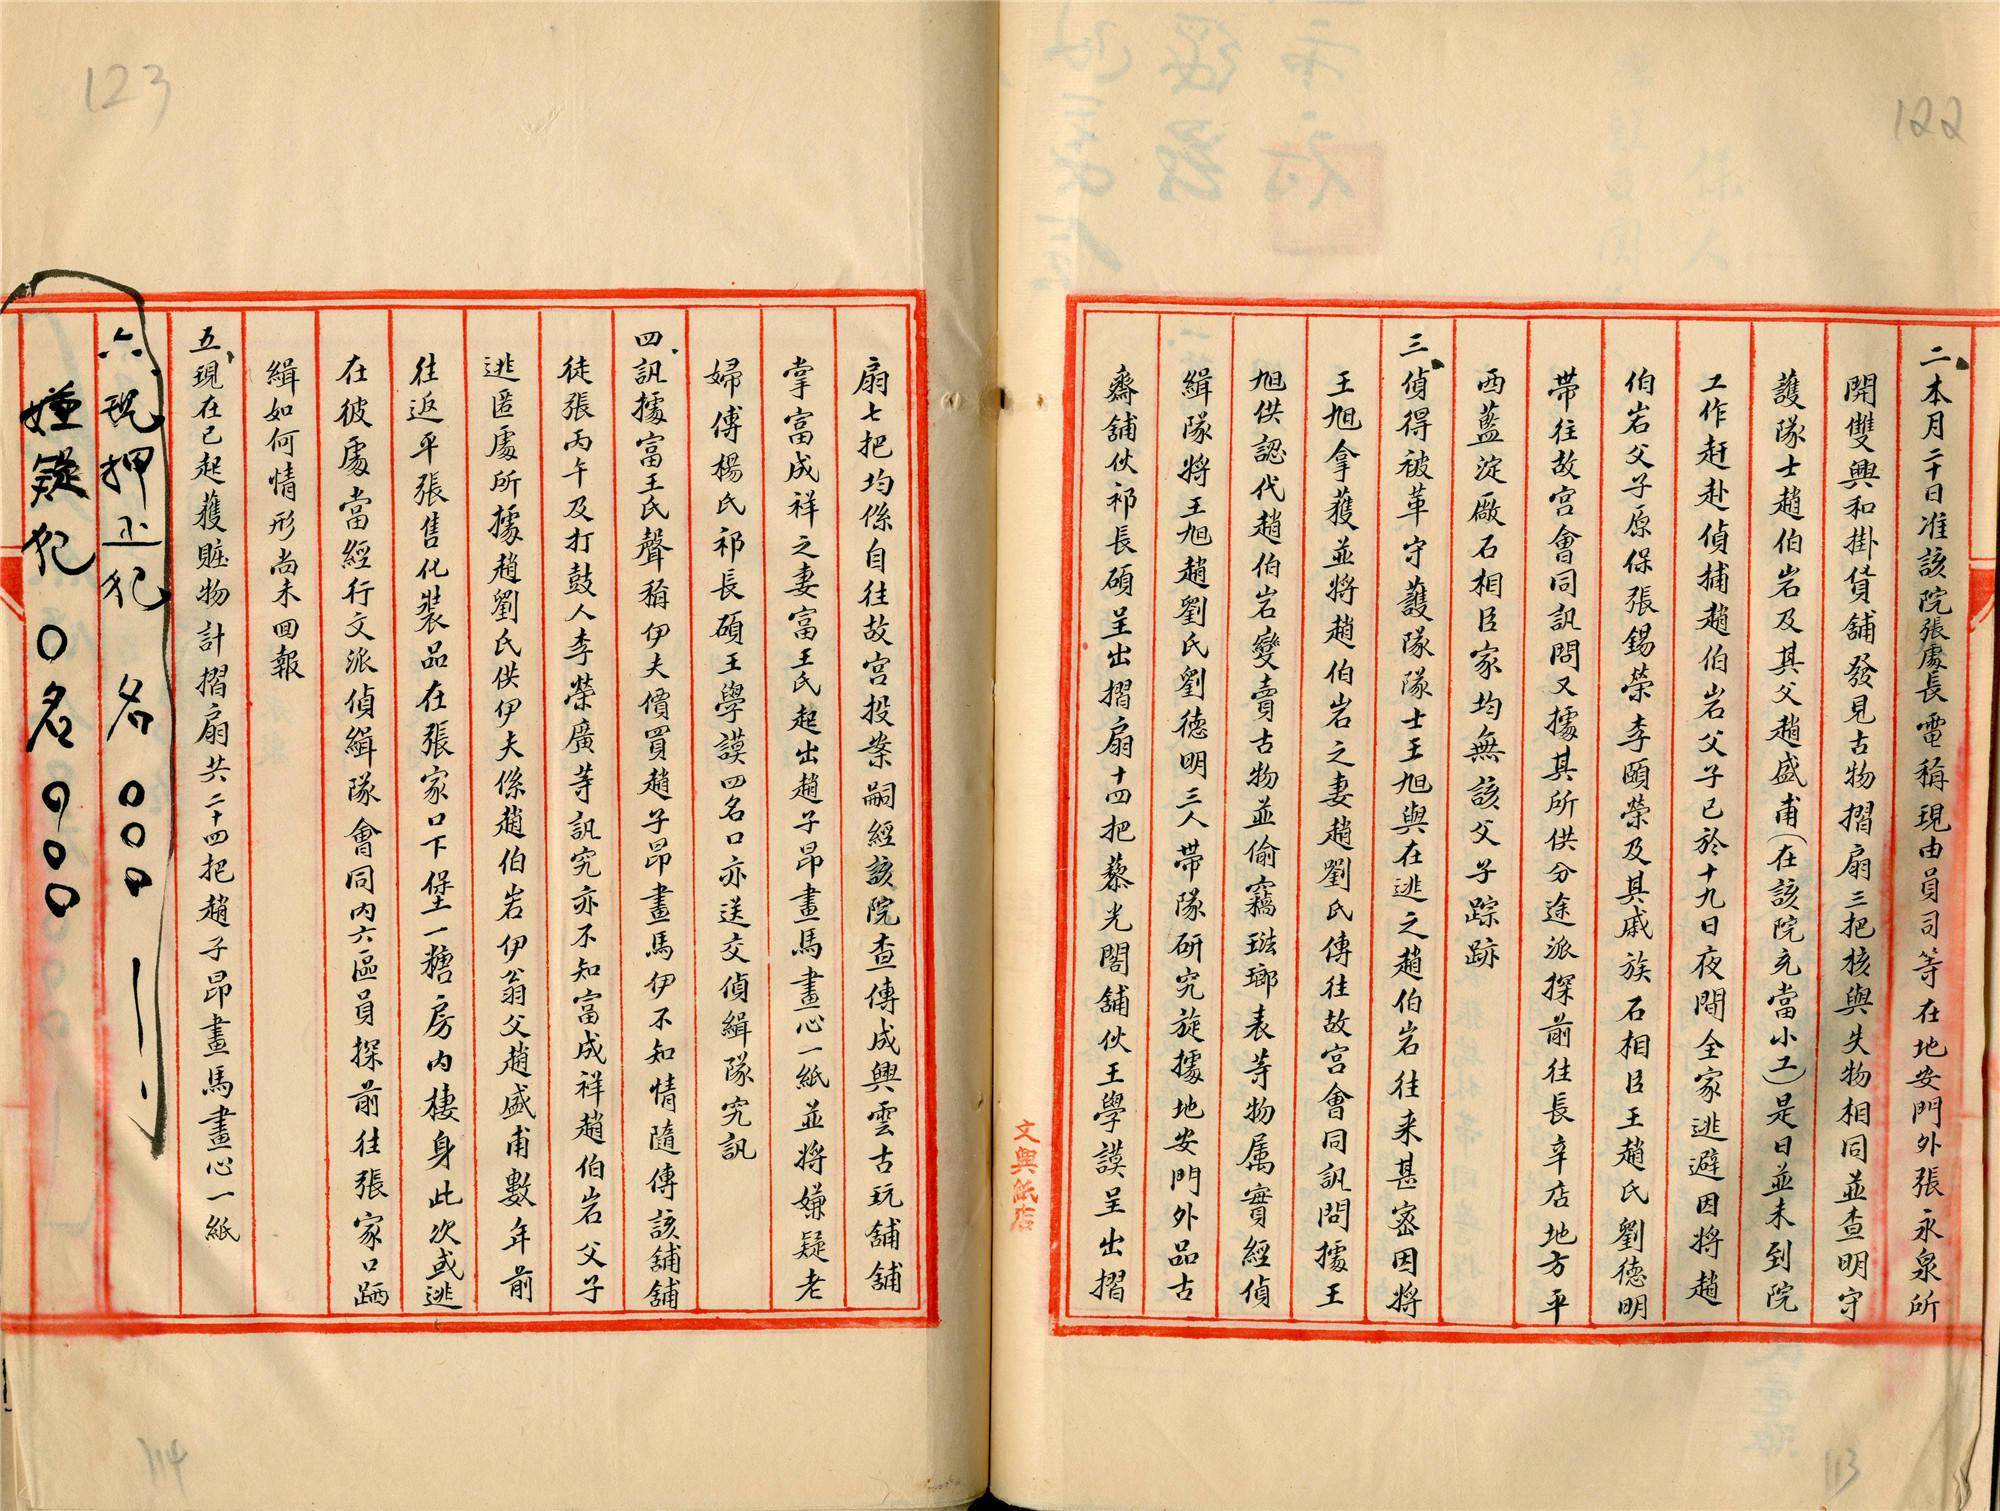 122
二、本月二十日准該院張處長電稱現由員司等在地安門外張永泉所
開雙興和掛貨舖發見古物摺扇三把核與失物相同並查明守
護隊士趙伯岩及其父趙盛甫(在該院充當小工)是日並未到院
工作赶赴偵捕趙伯岩父子已於十九日夜間全家逃避因將趙
伯岩父子原保張錫榮李頤榮及其戚族石相臣王趙氏劉德明
帶往故宮會同訊問又據其所供分途派探前往長辛店地方平
西藍淀廠石相臣家均無該父子踪跡
三、偵得被革守護隊隊士王旭與在逃之趙伯岩往来甚密因將
王旭拿獲並將趙伯岩之妻趙劉氏傳往故宮會同訊問據王
旭供認代趙伯岩變賣古物並偷竊琺瑯表等物属實經偵
緝隊將王旭趙劉氏劉德明三人帶隊研究旋據地安門外品古
齋舖伙祁長碩呈出摺扇十四把藜光閣舖伙王學謨呈出摺
文興紙店
113
123
扇七把均係自往故宮投案嗣經該院查傳成興雲古玩舖舖
掌富成祥之妻富王氏起出趙子昂畫馬畫心一紙並將嫌疑老
婦傅楊氏祁長碩王學謨四名口亦送交偵緝隊究訊
四、訊據富王氏聲稱伊夫價買趙子昂畫馬伊不知情隨傳該舖舖
徒張丙午及打鼓人李榮廣等訊究亦不知富成祥趙伯岩父子
逃匿處所據趙劉氏供伊夫係趙伯岩伊翁父趙盛甫數年前
往返平張售化裝品在張家口下堡一糖房内棲身此次或逃
在彼處當經行文派偵緝隊會同内六區員探前往張家口跴
緝如何情形尚未回報
五、現在已起獲贓物計摺扇共二十四把趙子昂畫馬畫心一紙
六、現押正犯 名
嫌疑犯 名
114